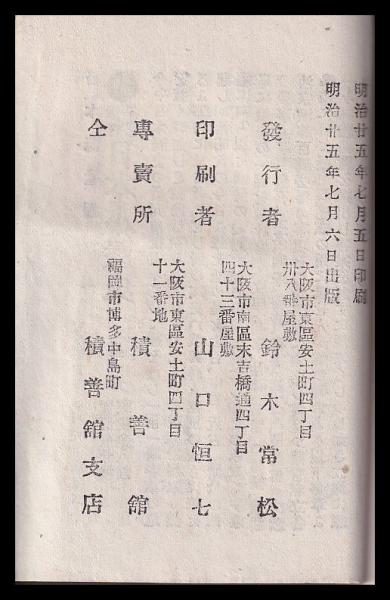 明治廿五年七月五日印刷
明治廿五年七月六日出版
大阪市東區安土町四丁目
卅八番屋敷
發行者 鈴木常松
大阪市南區末吉橋通四丁目
四十三番屋敷
印刷者 山口恒七
大阪市東區安土町四丁目
十一番地
專賣所 積善館
福岡市博多中島町
仝 積善舘支店